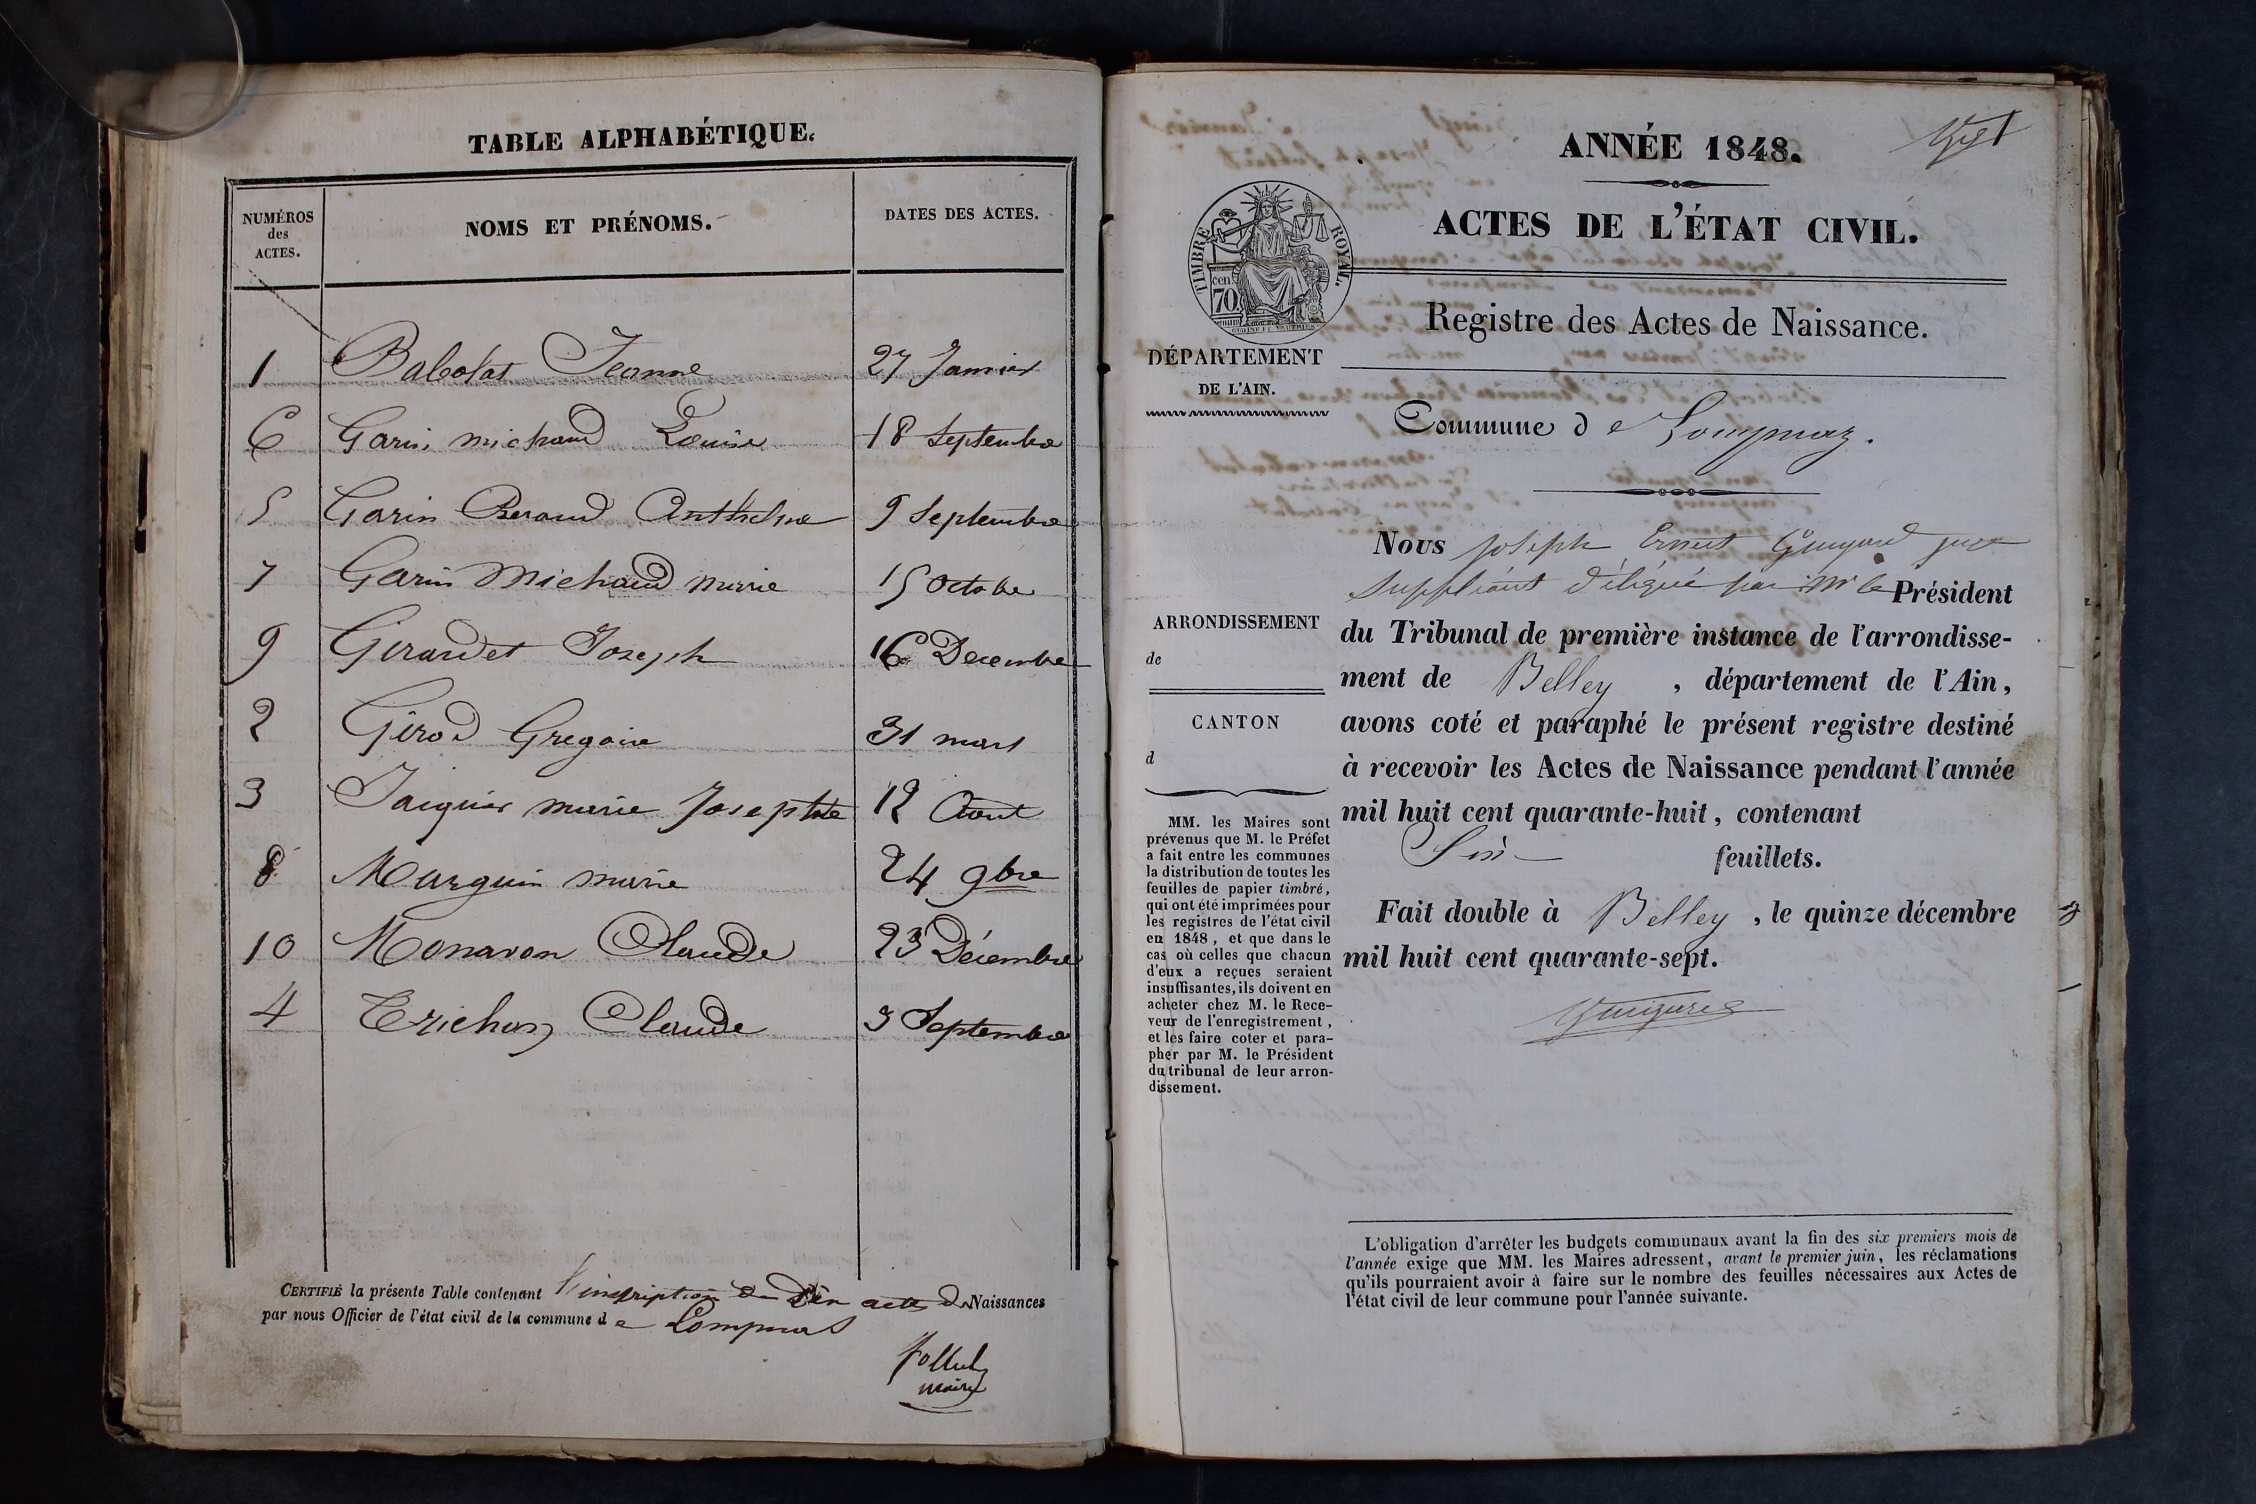 TABLE ALPHABÉTIQUE.
NUMÉROS
des
ACTES.
NOMS ET PRÉNOMS.
DATES DES ACTES.
1 Babolat Jeanne 27 Janvier
6 Garin michaud Louise 18 Septembre
5 Garin Beraud Anthelme 9 Septembre
7 Garin Michaud marie 15 octobre
9 Girardet Joseph 16 Decembre
2 Girod Gregoire 31 mars
3 Jaiquier marie Josephte 12 Aout
8 Marguin marie 24 9bre
10 Monavon Claude 23 Décembre
4 Trichon Claude 3 Septembre
CERTIFIÉ la présente Table contenant l'inscription de Dix actes de Naissances
par nous Officier de l'état civil de la commune d e Lompnas
maire
1
ANNÉE 1848.
ACTES DE L'ÉTAT CIVIL.
TIMBRE ROYAL.
70
cen
Registre des Actes de Naissance.
DÉPARTEMENT
DE L'AIN.
Commune d e Lompnaz.
ARRONDISSEMENT
de
CANTON
d
MM. les Maires sont
prévenus que M. le Préfet
a fait entre les communes
la distribution de toutes les
feuilles de papier timbré,
qui ont été imprimées pour
les registres de l'état civil
en 1848, et que dans le
cas où celles que chacun
d'eux a reçues seraient
insuffisantes, ils doivent en
acheter chez M. le Rece-
veur de l'enregistrement,
et les faire coter et para-
pher par M. le Président
du tribunal de leur arron-
dissement.
Nous Joseph Ernest Guigard juge
suppléant délégué par Mr le Président
du Tribunal de première instance de l'arrondisse-
ment de Belley, département de l'Ain,
avons coté et paraphé le présent registre destiné
à recevoir les Actes de Naissance pendant l'année
mil huit cent quarante-huit, contenant
Six feuillets.
Fait double à Belley, le quinze décembre
mil huit cent quarante-sept.
L'obligation d'arrêter les budgets communaux avant la fin des six premiers mois de
l'année exige que MM. les Maires adressent, avant le premier juin, les réclamations
qu'ils pourraient avoir à faire sur le nombre des feuilles nécessaires aux Actes de
l'état civil de leur commune pour l'année suivante.